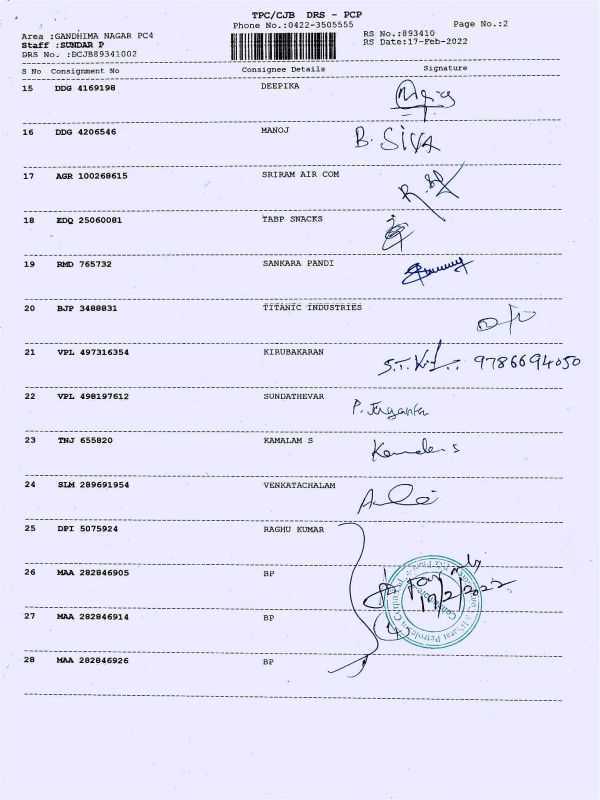 TPC/CJB DRS - PCP
Phone No.:0422-3505555
Page No.:2
Area :GANDHIMA NAGAR PC4
Staff :SUNDAR P
DRS No. :DCJB89341002
RS No.:893410
RS Date:17-Feb-2022
S No Consignment No Consignee Details Signature
15 DDG 4169198 DEEPIKA
16 DDG 4206546 MANOJ B. SIVA
17 AGR 100268615 SRIRAM AIR COM
18 EDQ 25060081 TABP SNACKS
19 RMD 765732 SANKARA PANDI
20 BJP 3488831 TITANIC INDUSTRIES
21 VPL 497316354 KIRUBAKARAN 9786694050
22 VPL 498197612 SUNDATHEVAR
23 TNJ 655820 KAMALAM S
24 SLM 289691954 VENKATACHALAM
25 DPI 5075924 RAGHU KUMAR
26 MAA 282846905 BP
17/2/2022
27 MAA 282846914 BP
(4)
28 MAA 282846926 BP